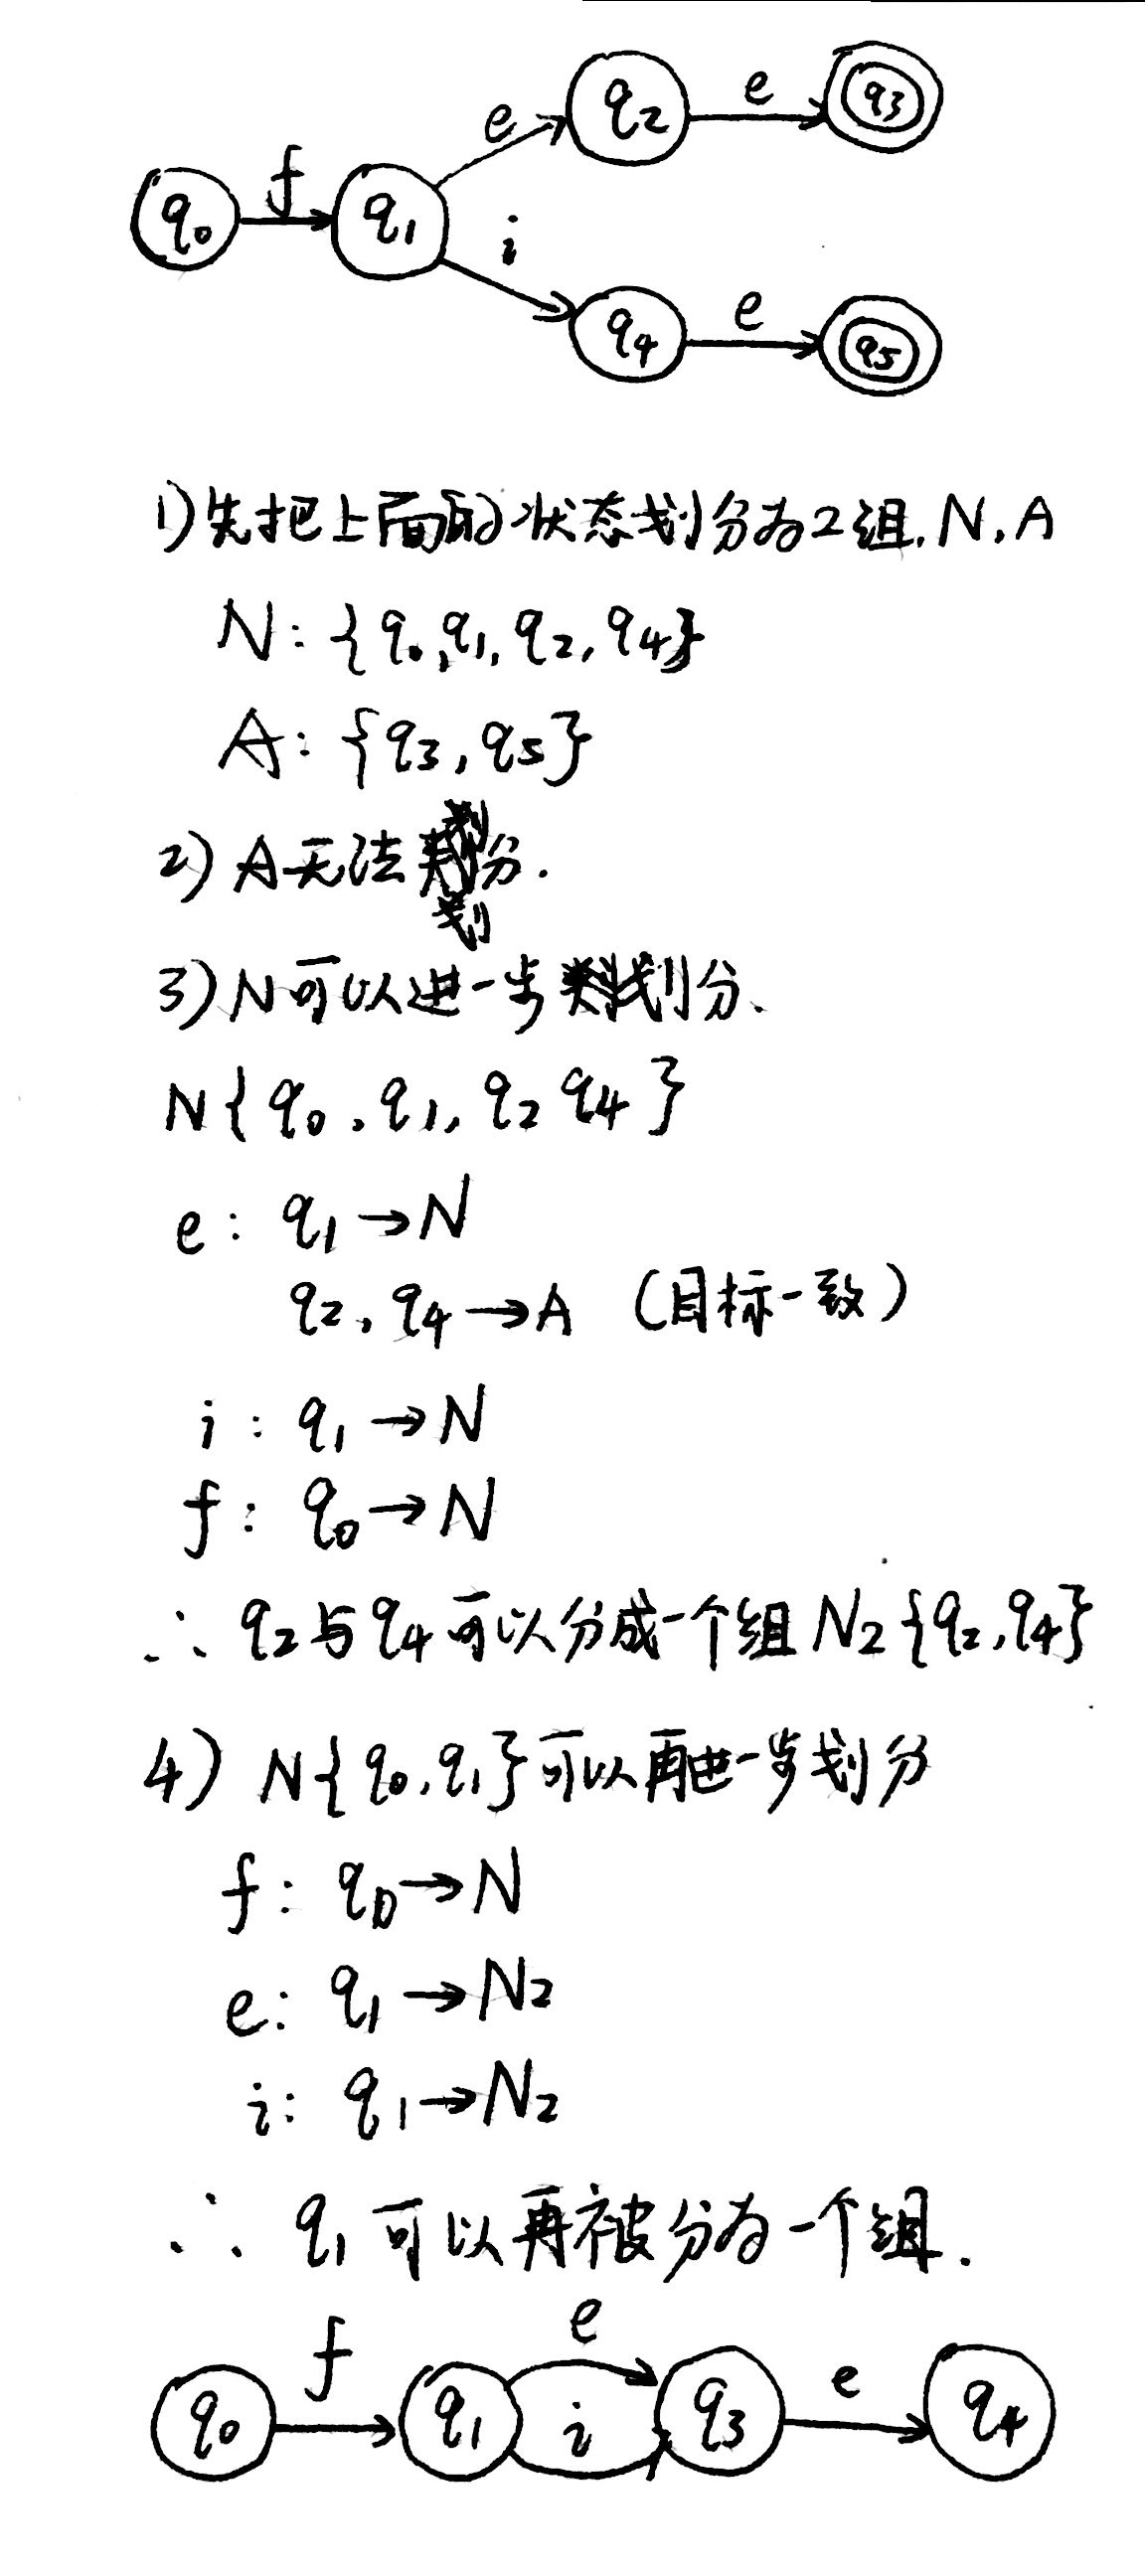 q0 f q1 e q2 e q3
i q4 e q5
1)先把上面的状态划分为2组,N,A
N:{q0,q1,q2,q4}
A:{q3,q5}
2)A无法划分.
3)N可以进一步划分、
N{q0、q1,q2 q4}
e: q1→N
q2,q4→A (目标一致)
i: q1→N
f: q0→N
∴ q2与q4可以分成一个组N2{q2,q4}
4) N{q0,q1}可以再进一步划分
f: q0→N
e: q1→N2
i: q1→N2
∴ q1可以再被分为一个组.
q0 f q1 e i q3 e q4